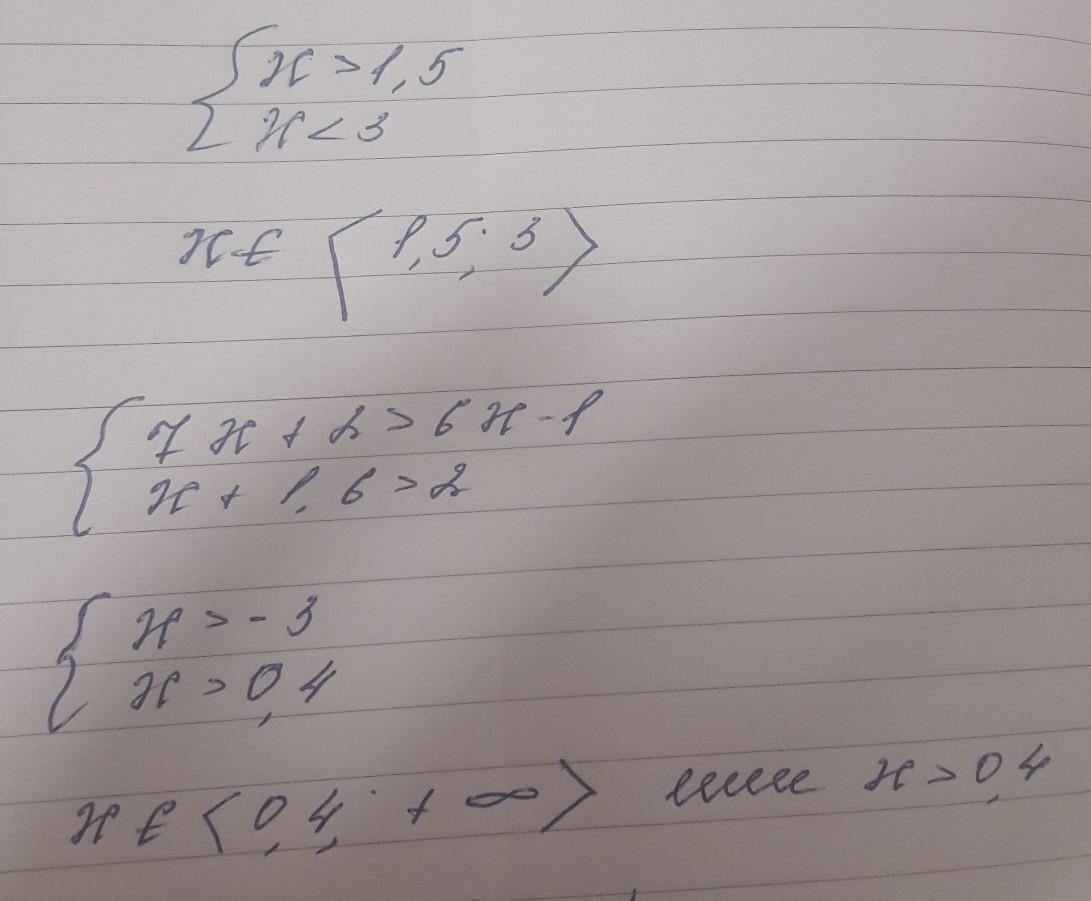 { x > 1,5
x < 3
x ∈ ⟨ 1,5; 3 ⟩
{ 7x + 2 > 6x - 1
x + 1,6 > 2
{ x > - 3
x > 0,4
x ∈ ⟨ 0,4; + ∞ ⟩ или x > 0,4